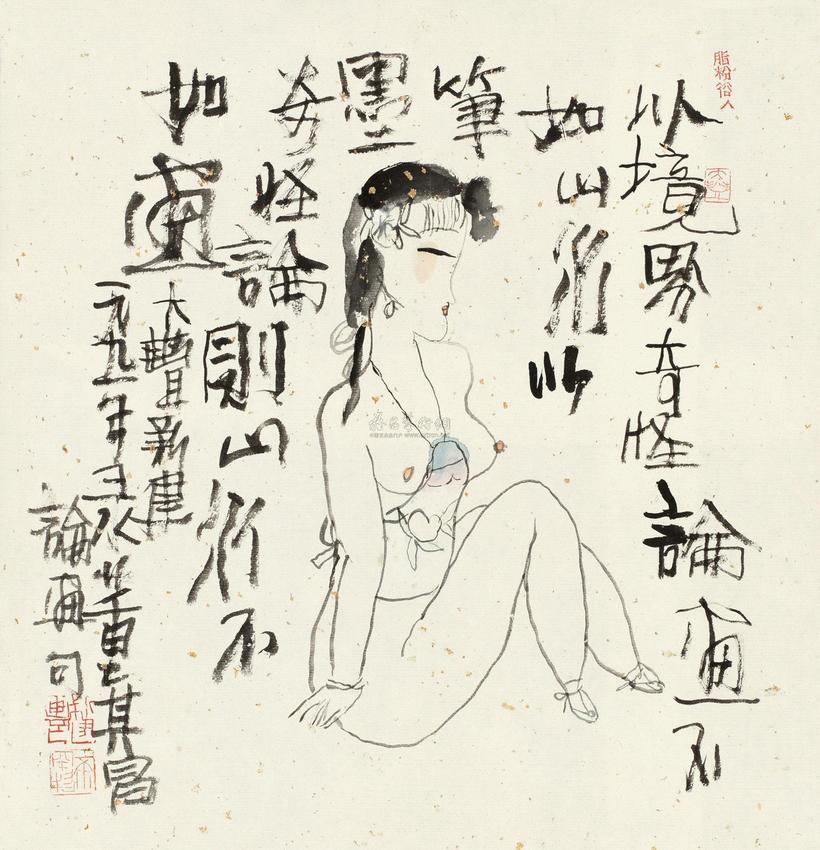 脂粉俗人
以境界奇怪論畫不
如山水以
筆
墨
奇怪論則山水不
如畫
大豐新建
一九九一年 董其昌
論畫句